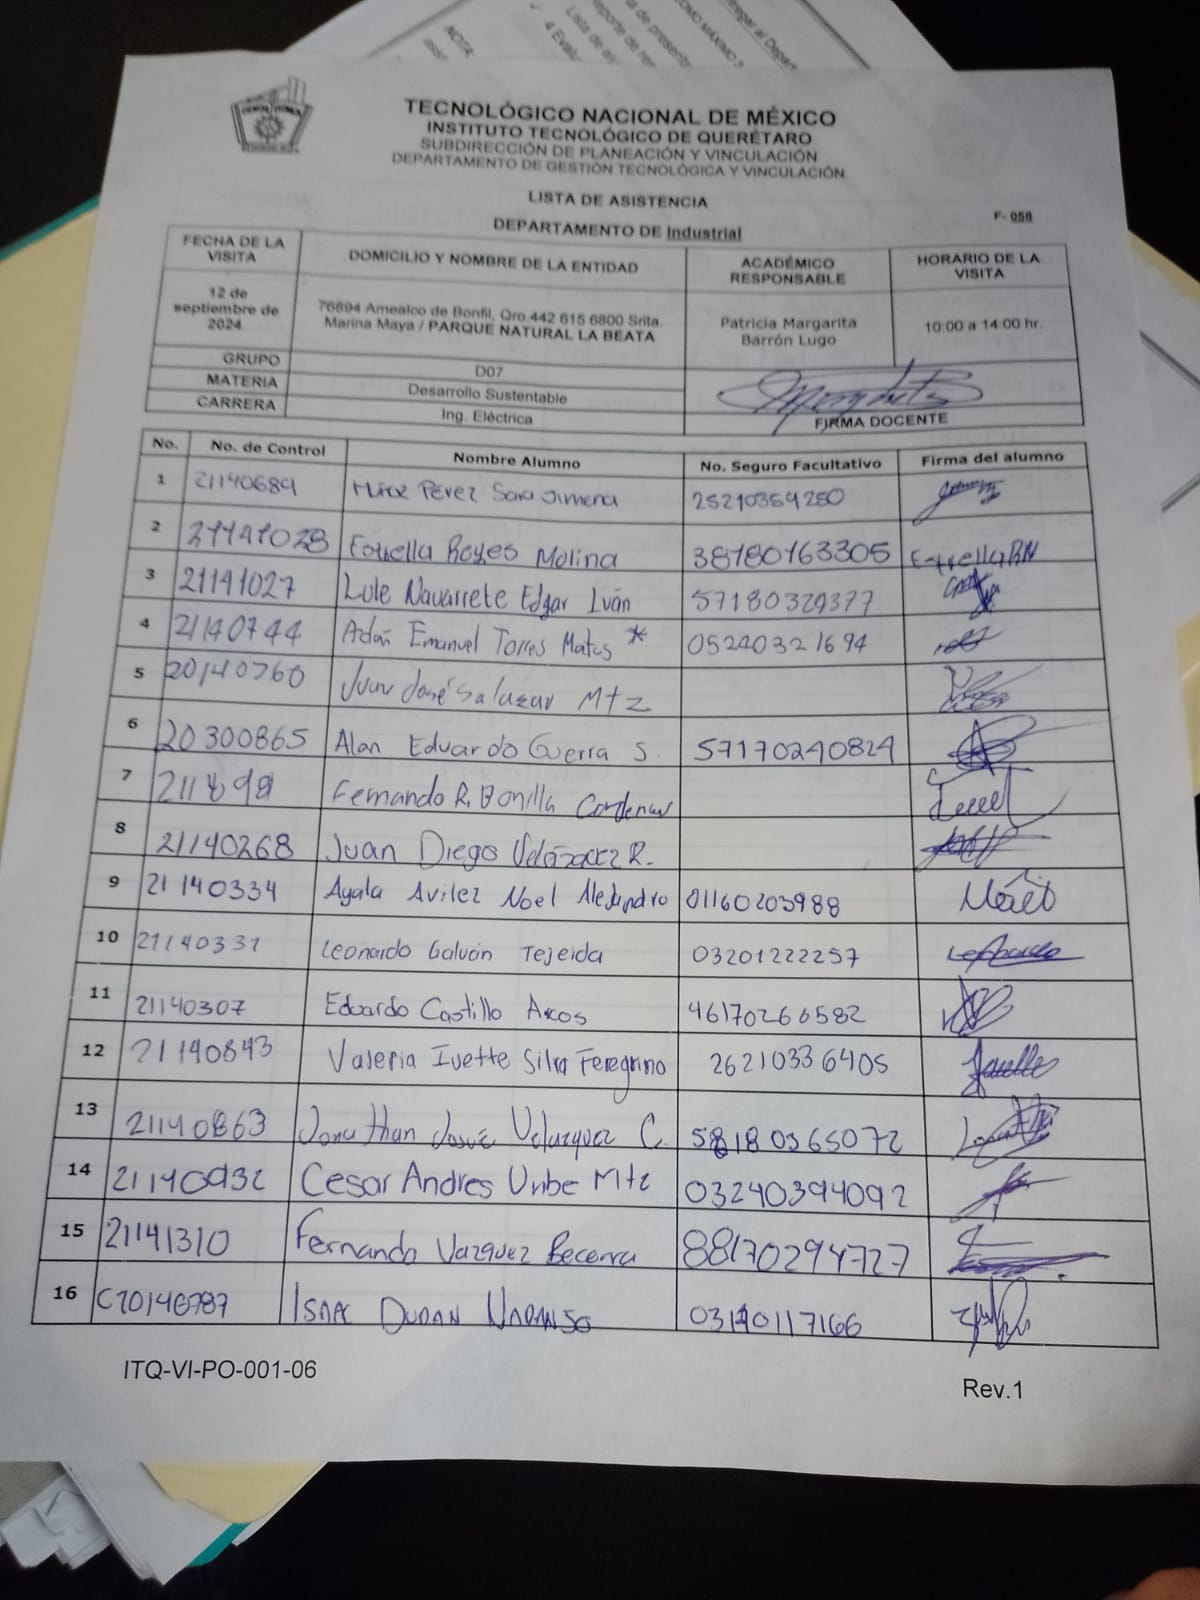 TECNOLÓGICO NACIONAL DE MÉXICO
INSTITUTO TECNOLÓGICO DE QUERÉTARO
SUBDIRECCIÓN DE PLANEACIÓN Y VINCULACIÓN
DEPARTAMENTO DE GESTIÓN TECNOLÓGICA Y VINCULACIÓN
LISTA DE ASISTENCIA
F- 050
DEPARTAMENTO DE Industrial
FECHA DE LA VISITA DOMICILIO Y NOMBRE DE LA ENTIDAD ACADÉMICO RESPONSABLE HORARIO DE LA VISITA
12 de septiembre de 2024 76894 Amealco de Bonfil, Qro.442 615 6800 Srita. Marina Maya / PARQUE NATURAL LA BEATA Patricia Margarita Barrón Lugo 10:00 a 14:00 hr.
GRUPO D07
MATERIA Desarrollo Sustentable
CARRERA Ing. Eléctrica FIRMA DOCENTE
No. No. de Control Nombre Alumno No. Seguro Facultativo Firma del alumno
1 21140689 Pérez Sara Jimena 25210359280
2 21141028 Estrella Reyes Molina 38180163305 EstrellaRN
3 21141027 Lule Navarrete Edgar Iván 57180329377
4 21140744 Adán Emanuel Torres Matus * 05240321694
5 20140760 Juan José Salazar Mtz
6 20300865 Alan Eduardo Guerra S. 57170240824
7 Fernando R. Bonilla Cardenas
8 21140268 Juan Diego Velázquez R.
9 21140334 Ayala Avilez Noel Alejandro 01160203988
10 21140331 Leonardo Galván Tejeida 03201222257
11 21140307 Eduardo Castillo Arcos 46170266582
12 21140843 Valeria Ivette Silva Feregrino 26210336405
13 21140863 Jonathan Josué Velazquez C. 58180365072
14 21140932 Cesar Andres Uribe Mtz 03240394092
15 21141310 Fernando Vazquez Becerra 88170294727
16 C20140787 ISAAC DURAN 03190117166
ITQ-VI-PO-001-06
Rev.1